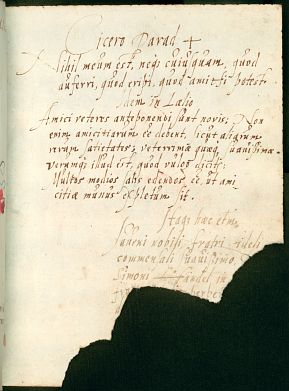 Cicero Parad
Nihil meum est, neq; cuiusquam, quod
auferri, quod eripi, quod amitti potest.
Idem in Lælio
Amici veteres anteponendi sunt novis; Non
enim amicitiarum eē debent, sicut aliarum
rerum satietates; veterrimæ quæq; suavissimæ.
verumq; illud est, quod vulgo dicit~
Multos modios salis edendos eē, ut ami
citiæ munus expletum sit.
Itaq; hæc etm̄
Iuveni nobili fratri fideli
commensali suavissimo
Simoni in